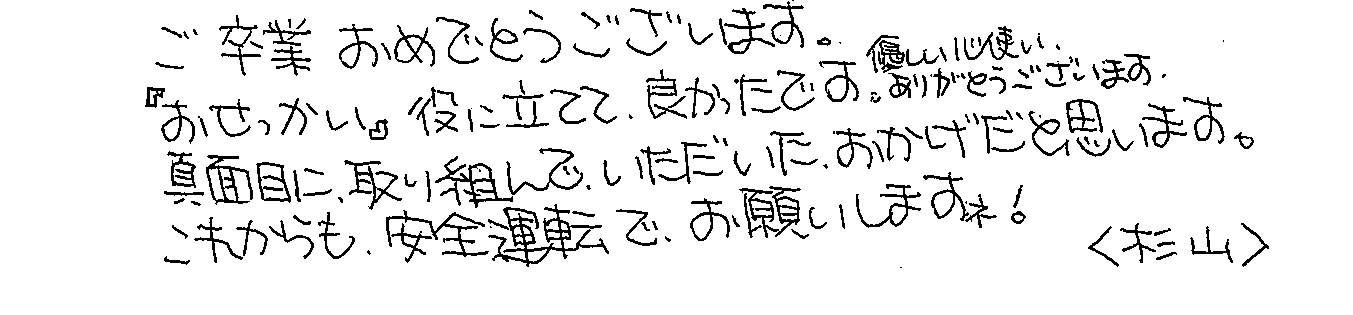 ご卒業おめでとうございます。
『おせっかい』役に立てて、良かったです。優しい心使い、
ありがとうございます.
真面目に、取り組んで、いただいた、おかげだと思います。
これからも、安全運転で、お願いしますネ!
<杉山>